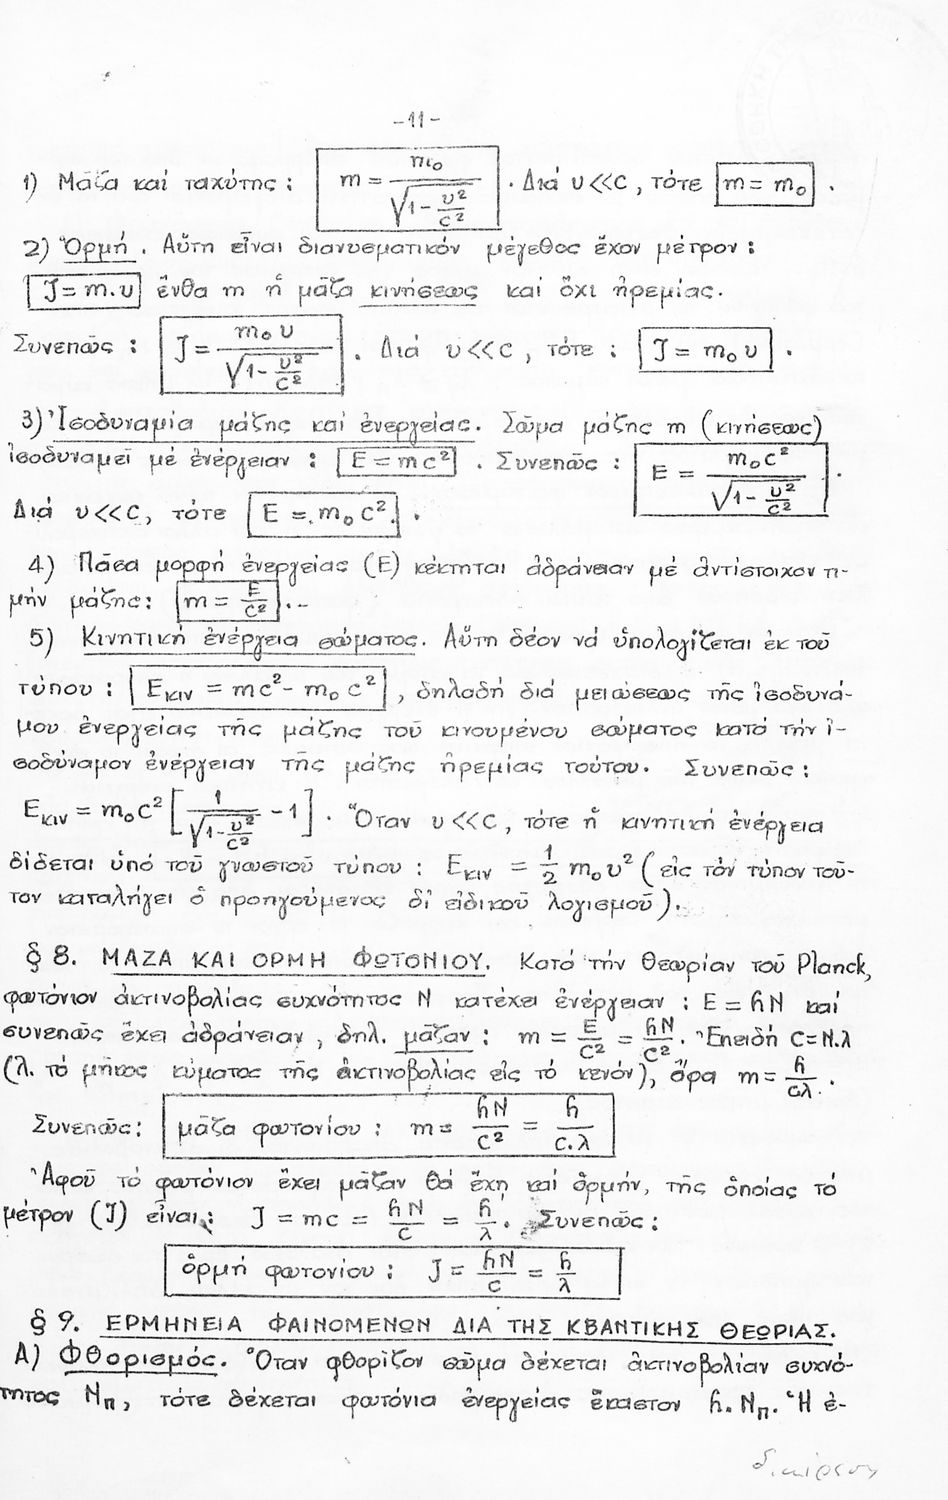 -11-
1) Μᾶζα καί ταχύτης : m = m₀ / √(1 - υ²/c²) . Διά υ << c , τότε m = m₀ .
2) Ὁρμή . Αὕτη εἶναι διανυσματικόν μέγεθος ἔχον μέτρον :
J = m.υ ἔνθα m ἡ μᾶζα κινήσεως καί ὄχι ἠρεμίας.
Συνεπῶς : J = m₀ υ / √(1 - υ²/c²) . Διά υ << c , τότε : J = m₀ υ .
3) Ἰσοδυναμία μάζης καί ἐνεργείας. Σῶμα μάζης m (κινήσεως)
ἰσοδυναμεῖ μέ ἐνέργειαν : E = mc² . Συνεπῶς : E = m₀c² / √(1 - υ²/c²) .
Διά υ << c, τότε E = m₀c² .
4) Πᾶσα μορφή ἐνεργείας (E) κέκτηται ἀδράνειαν μέ ἀντίστοιχον τι-
μήν μάζης: m = E/c² .-
5) Κινητική ἐνέργεια σώματος. Αὕτη δέον νά ὑπολογίζεται ἐκ τοῦ
τύπου : Eκιν = mc² - m₀c² , δηλαδή διά μειώσεως τῆς ἰσοδυνά-
μου ἐνεργείας τῆς μάζης τοῦ κινουμένου σώματος κατά τήν ἰ-
σοδύναμον ἐνέργειαν τῆς μάζης ἠρεμίας τούτου. Συνεπῶς :
Eκιν = m₀c² [ 1/√(1-υ²/c²) - 1 ] . Ὅταν υ << c , τότε ἡ κινητική ἐνέργεια
δίδεται ὑπό τοῦ γνωστοῦ τύπου : Eκιν = 1/2 m₀υ² (εἰς τόν τύπον τοῦ-
τον καταλήγει ὁ προηγούμενος δι' εἰδικοῦ λογισμοῦ).
§ 8. ΜΑΖΑ ΚΑΙ ΟΡΜΗ ΦΩΤΟΝΙΟΥ. Κατά τήν Θεωρίαν τοῦ Planck,
φωτόνιον ἀκτινοβολίας συχνότητος N κατέχει ἐνέργειαν : E = hN καί
συνεπῶς ἔχει ἀδράνειαν , δηλ. μᾶζαν : m = E/c² = hN/c² . Ἐπειδή C = N.λ
(λ. τό μῆκος κύματος τῆς ἀκτινοβολίας εἰς τό κενόν), ἄρα m = h/cλ .
Συνεπῶς: μᾶζα φωτονίου : m = hN/c² = h/c.λ
Ἀφοῦ τό φωτόνιον ἔχει μᾶζαν θά ἔχῃ καί ὁρμήν, τῆς ὁποίας τό
μέτρον (J) εἶναι : J = mc = hN/c = h/λ . Συνεπῶς :
ὁρμή φωτονίου : J = hN/c = h/λ
§ 9. ΕΡΜΗΝΕΙΑ ΦΑΙΝΟΜΕΝΩΝ ΔΙΑ ΤΗΣ ΚΒΑΝΤΙΚΗΣ ΘΕΩΡΙΑΣ.
Α) Φθορισμός. Ὅταν φθορίζον σῶμα δέχεται ἀκτινοβολίαν συχνό-
τητος Nπ, τότε δέχεται φωτόνια ἐνεργείας ἕκαστον h.Nπ. Ἡ ἐ-